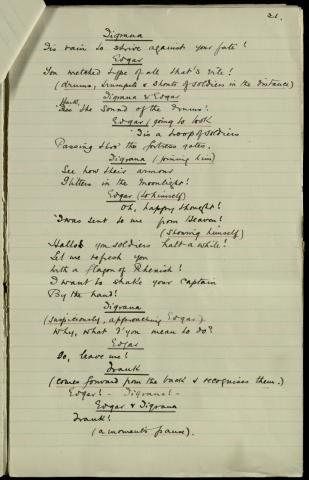 21.
Digrana
'Tis vain to strive against your fate!
Edgar
You wretched type of all that's vile!
(drums, trumpets & shouts of soldiers in the distance)
Digrana & Edgar
Hark,
'Tis the sound of the drums!
Edgar (going to look
'Tis a troop of soldiers
Passing thro' the fortress gates.
Digrana (joining him)
See how their armour
Glitters in the Moonlight!
Edgar (to himself)
Oh, happy thought!
'Twas sent to me from Heaven!
(showing himself)
Hallo you soldiers halt-a while!
Let me refresh you
With a flagon of Rhenish!
I want to shake your Captain
By the hand!
Digrana
(suspiciously, approaching Edgar)
Why, what d'you mean to do?
Edgar
Go, leave me!
Frank
(comes forward from the back & recognises them.)
Edgar! - Digrana! -
Edgar & Digrana
Frank!
(a moments pause).